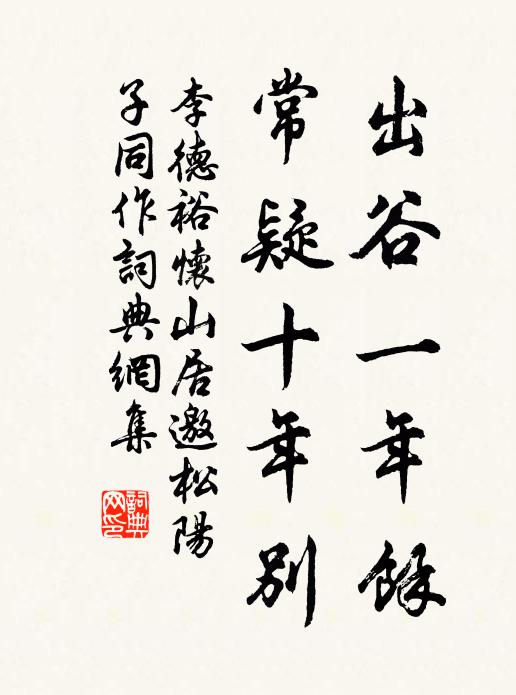 出谷一年餘
常疑十年別
李德裕懷山居邀松陽
子同作詞典網集
詞典
网印